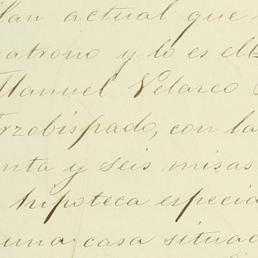 llan actual que
patrono y lo es el B
Manuel Velasco
Arzobispado, con la
enta y seis misas
hipoteca especia
una casa situad